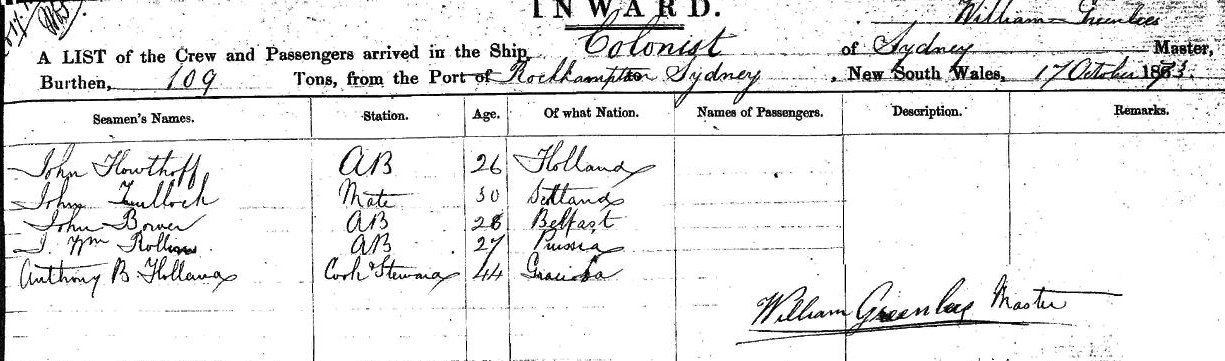 INWARD.
William Greenlees
A LIST of the Crew and Passengers arrived in the Ship Colonist of Sydney Master,
Burthen, 109 Tons, from the Port of Rockhampton Sydney, New South Wales, 17 October 1873.
Seamen's Names. Station. Age. Of what Nation. Names of Passengers. Description. Remarks.
John AB 26 Holland
John Mate 30 Scotland
John Bower AB 28 Belfast
J. Wm AB 27 Prussia
Anthony B Holland Cook & Steward 44
William Greenlees Master